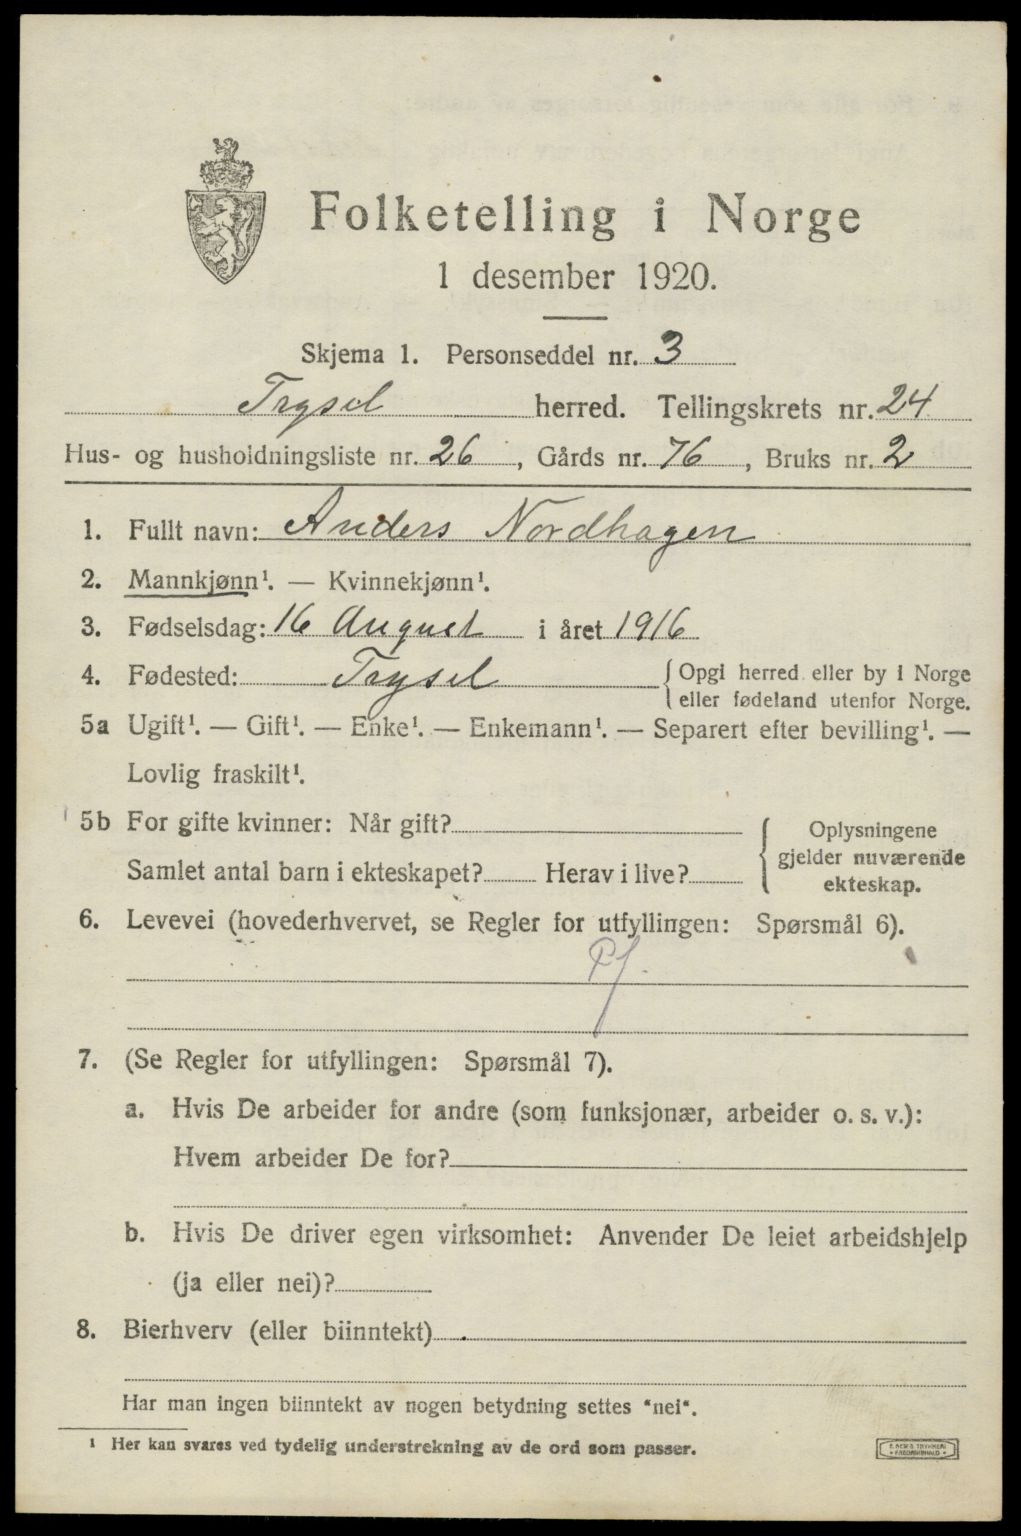 Folketelling i Norge
1 desember 1920.
Skjema 1. Personseddel nr. 3
Trysil herred. Tellingskrets nr. 24
Hus- og husholdningsliste nr. 26, Gårds nr. 76, Bruks nr. 2
1. Fullt navn: Anders Nordhagen
2. Mannkjønn¹. — Kvinnekjønn¹.
3. Fødselsdag: 16 August i året 1916
4. Fødested: Trysil { Opgi herred eller by i Norge
eller fødeland utenfor Norge.
5a Ugift¹. — Gift¹. — Enke¹. — Enkemann¹. — Separert efter bevilling¹. —
Lovlig fraskilt¹.
5b For gifte kvinner: Når gift?
Samlet antal barn i ekteskapet? Herav i live?
Oplysningene
gjelder nuværende
ekteskap.
6. Levevei (hovederhvervet, se Regler for utfyllingen: Spørsmål 6).
Pf.
7. (Se Regler for utfyllingen: Spørsmål 7).
a. Hvis De arbeider for andre (som funksjonær, arbeider o. s. v.):
Hvem arbeider De for?
b. Hvis De driver egen virksomhet: Anvender De leiet arbeidshjelp
(ja eller nei)?
8. Bierhverv (eller biinntekt)
Har man ingen biinntekt av nogen betydning settes "nei".
¹ Her kan svares ved tydelig understrekning av de ord som passer.